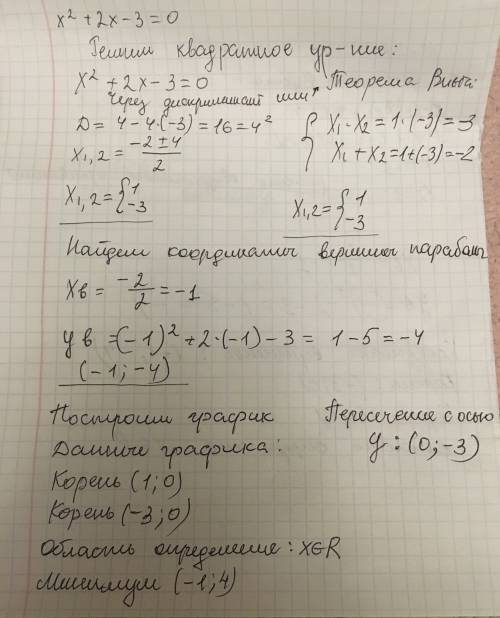 x² + 2x - 3 = 0
Решим квадратное ур-ние:
x² + 2x - 3 = 0
Через дискриминант или Теорема Виета:
D = 4 - 4·(-3) = 16 = 4²
x₁,₂ = (-2 ± 4)/2
x₁,₂ = { 1 -3
{ x₁·x₂ = 1·(-3) = -3
x₁ + x₂ = 1 + (-3) = -2
x₁,₂ = { 1 -3
Найдем координаты вершины параболы
xв = -2/2 = -1
yв = (-1)² + 2·(-1) - 3 = 1 - 5 = -4
(-1; -4)
Построим график
Данные графика:
Корень (1; 0)
Корень (-3; 0)
Область определение: x∈R
Минимум (-1; 4)
Пересечение с осью
y: (0; -3)